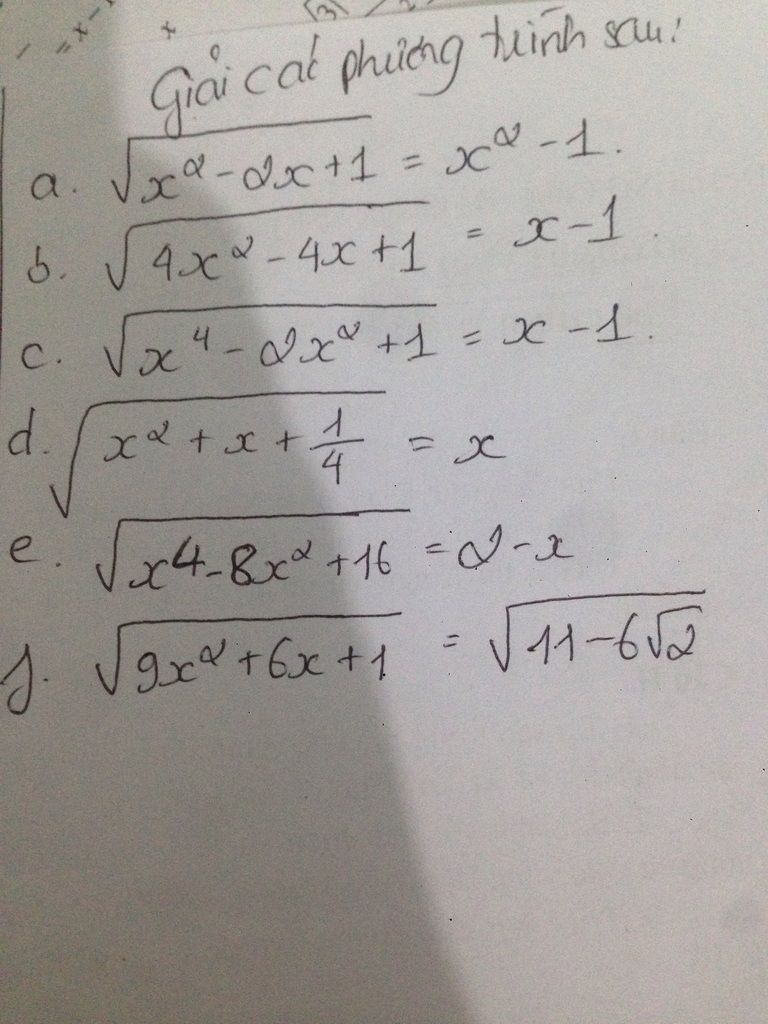 Giải các phương trình sau:
a. √(x² - 2x + 1) = x² - 1.
b. √(4x² - 4x + 1) = x - 1.
c. √(x⁴ - 2x² + 1) = x - 1.
d. √(x² + x + 1/4) = x
e. √(x⁴ - 8x² + 16) = 2 - x
f. √(9x² + 6x + 1) = √(11 - 6√2)